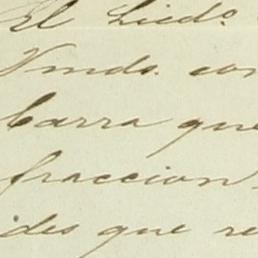 El Licdo.
Vmds. con
barra que
fraccion
ides que re